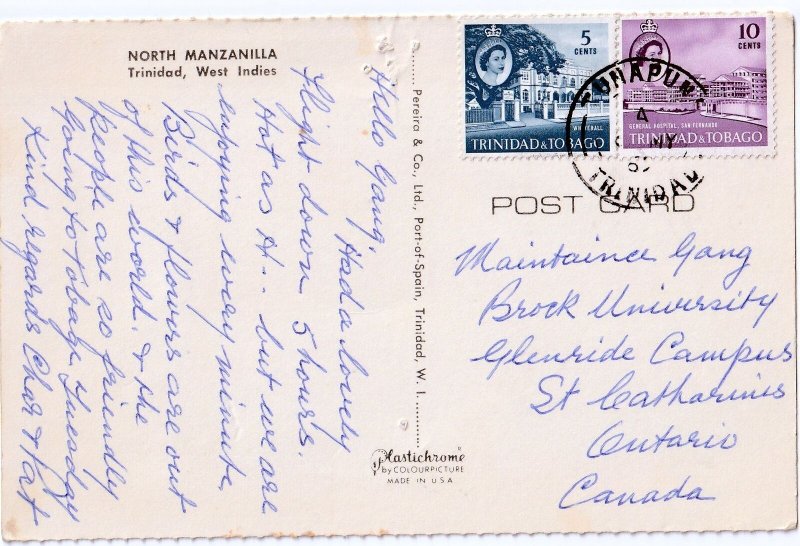 NORTH MANZANILLA
Trinidad, West Indies
Hello Gang.
Had a lovely
flight down 5 hours.
Hot as H-- but we are
enjoying every minute.
Birds & flowers are out
of this world. & the
people are so friendly
Going to Tobago Tuesday
Kind regards Char & Pat
Pereira & Co., Ltd., Port-of-Spain, Trinidad, W. I.
Plastichrome
by COLOURPICTURE
MADE IN U.S.A
5
CENTS
WHITEHALL
TRINIDAD & TOBAGO
10
CENTS
GENERAL HOSPITAL, SAN FERNANDO
TRINIDAD & TOBAGO
TUNAPUNA
4
TRINIDAD
POST CARD
Maintaince Gang
Brock University
Glenride Campus
St Catharines
Ontario
Canada